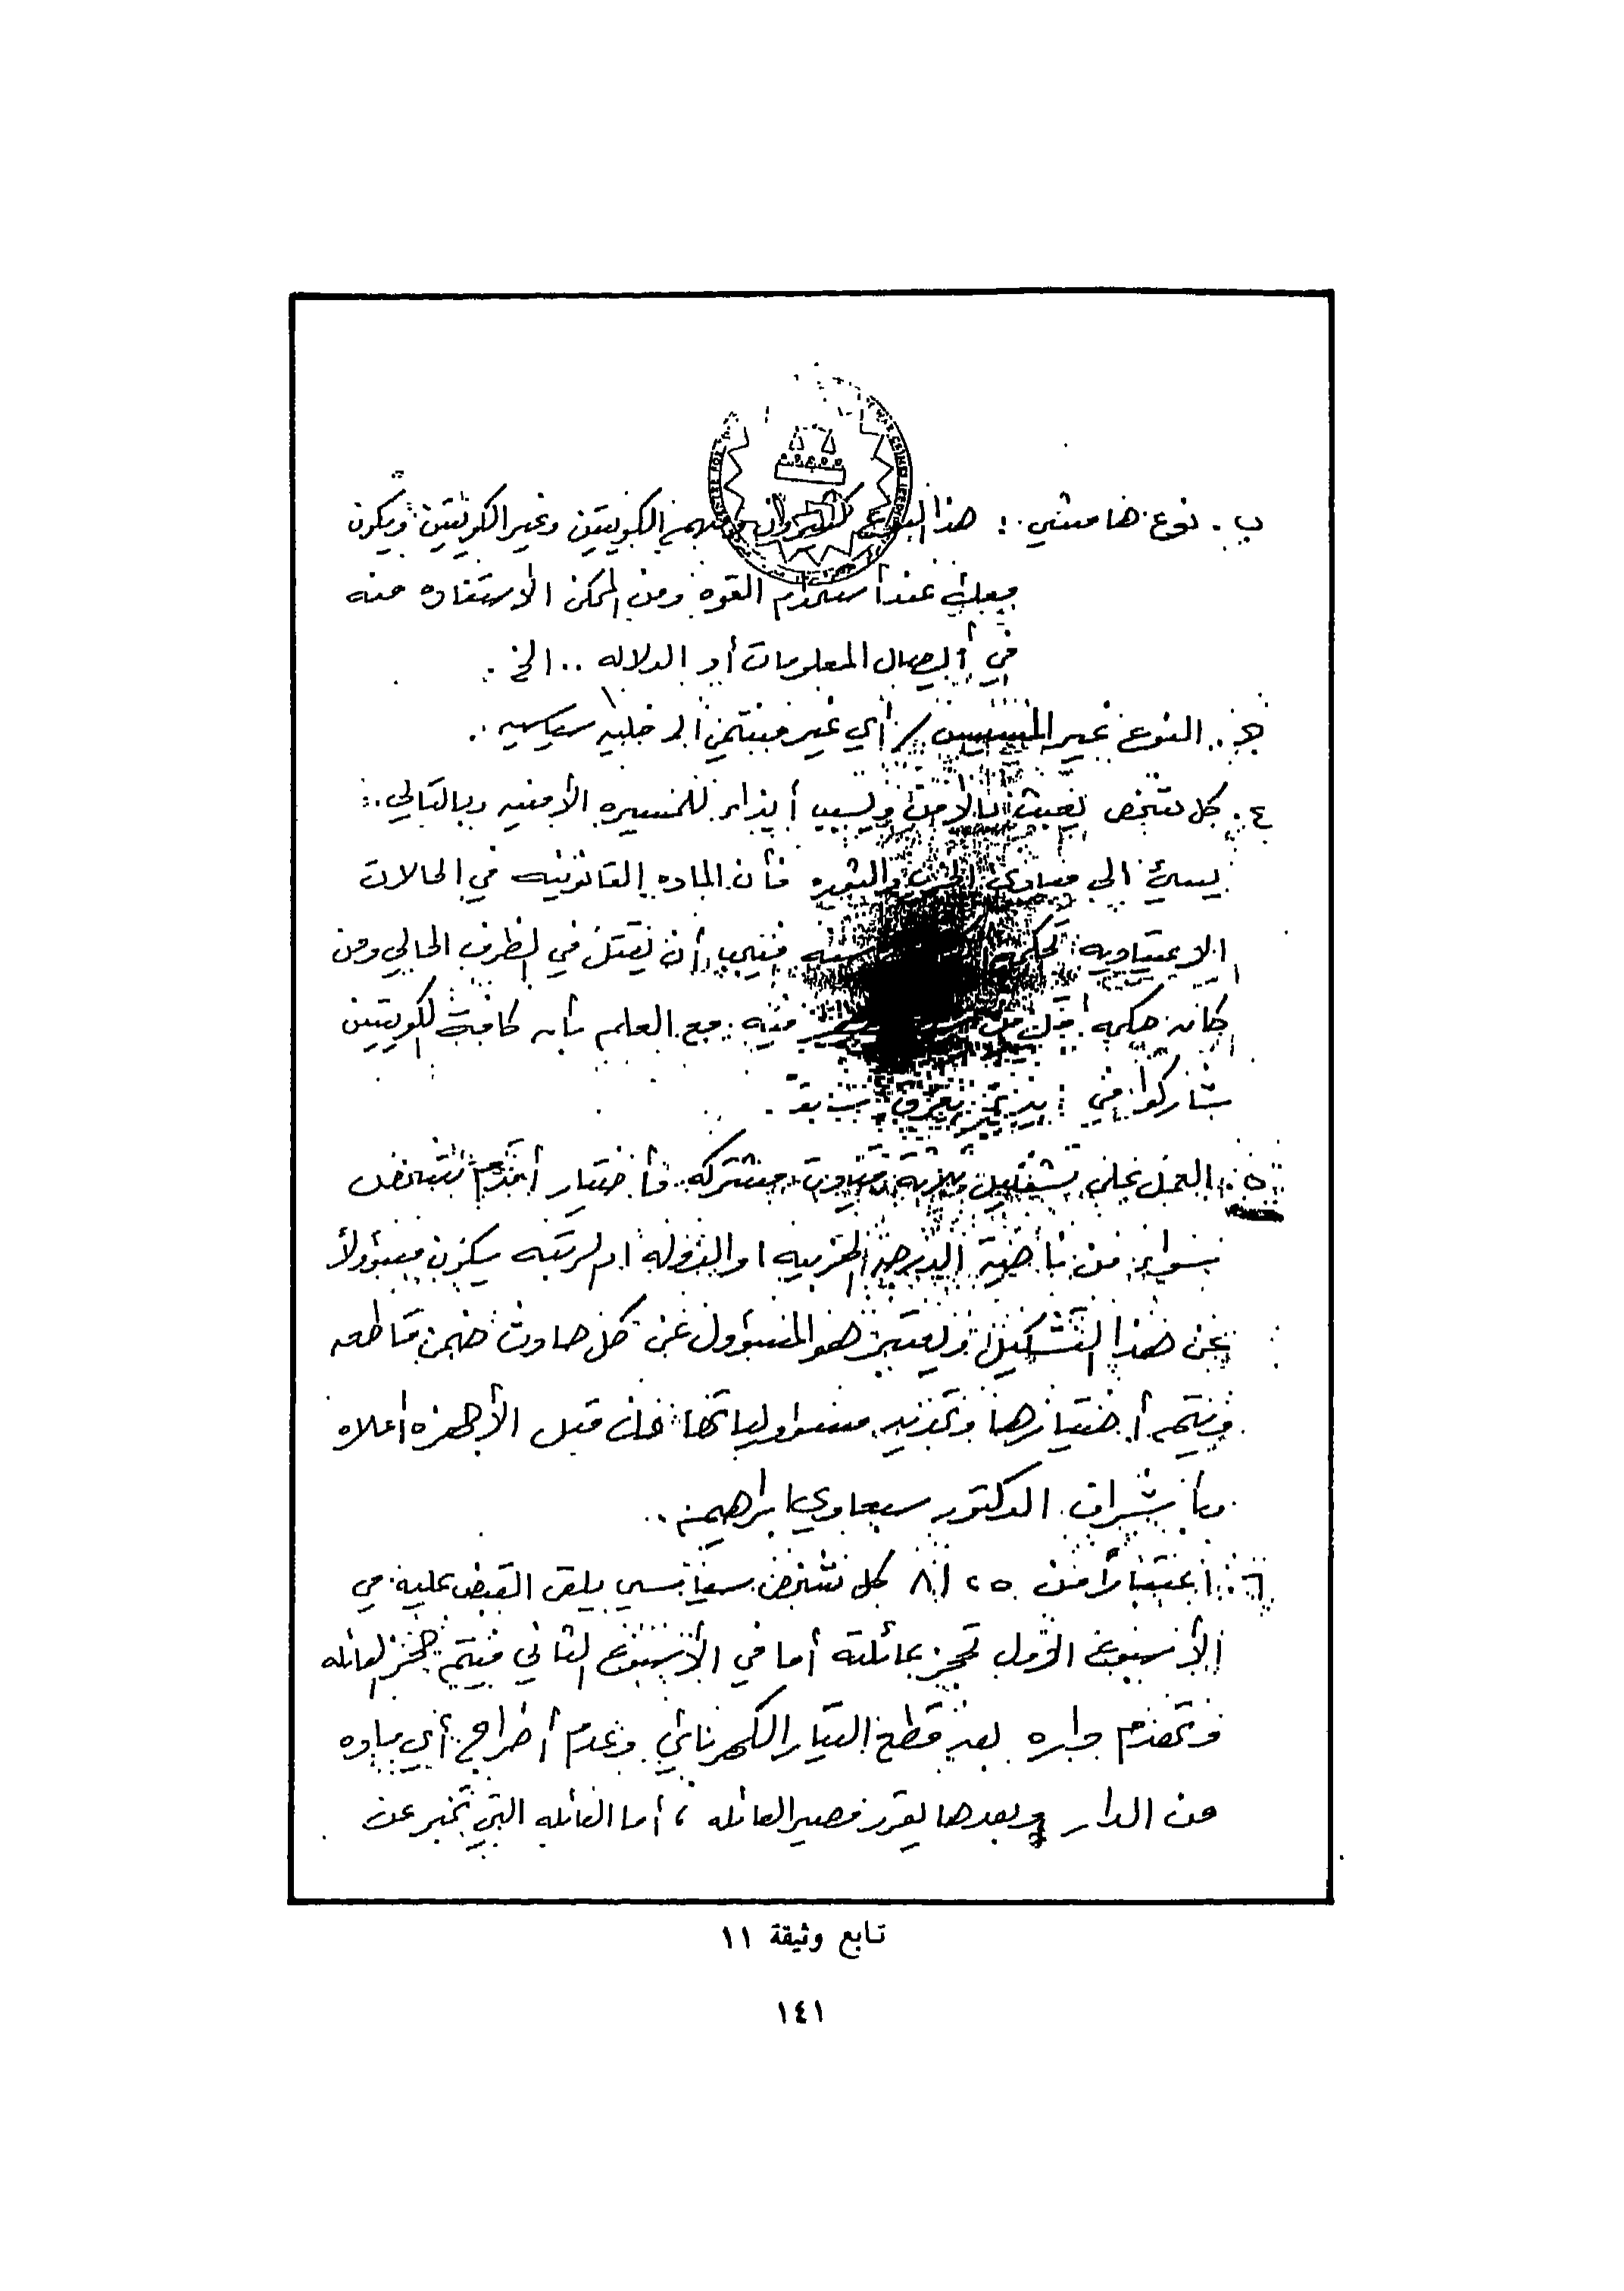 ب . نوع هامشي : هذا النوع كثيرون ومنهم الكويتيين وغير الكويتيين ويكون
عند أستخدام القوه ومن الممكن الأستفاده منه
في أيصال المعلومات أو الدلاله .. الخ .
ج . النوع غير المسيس / أي غير منتمي الى خليه سياسيه ..
٤ . كل شخص يعبث بالأمن ويسبب أيذاء للمسيره الأمنيه وبالتالي :
يسيئ الى مبادئ الحزب والثوره فأن الماده القانونيه في الحالات
الاعتياديه تحكمه سنه فيجب أن يقتل في الظرف الحالي ومن
كان حكمه أقل من فيه . مع العلم بأن كافة الكويتيين
شاركوا في
٥ . العمل على تشكيل مشتركه وأختيار أقدم شخص
سواء من ناحية الدرجه الحزبيه او الدوله او الرتبه يكون مسؤولاً
عن هذا التشكيل ويعتبر هو المسؤول عن كل حادث ضمن قاطعه
ويتم أختيارها وتحديد مسؤولياتها من قبل الأجهزه اعلاه
وبأشراف الدكتور سبعاوي ابراهيم ..
٦ . اعتباراً من ٢٥ / ٨ كل شخص سياسي يلقى القبض عليه في
الأسبوع الأول تحجز عائلته أما في الأسبوع الثاني فيتم حجز العائله
وتهدم داره بعد قطع التيار الكهربائي وعدم أخراج أي ماده
من الدار وبعدها يقرر مصير العائله ، أما العائله التي تخبر عن
تابع وثيقة ١١
١٤١